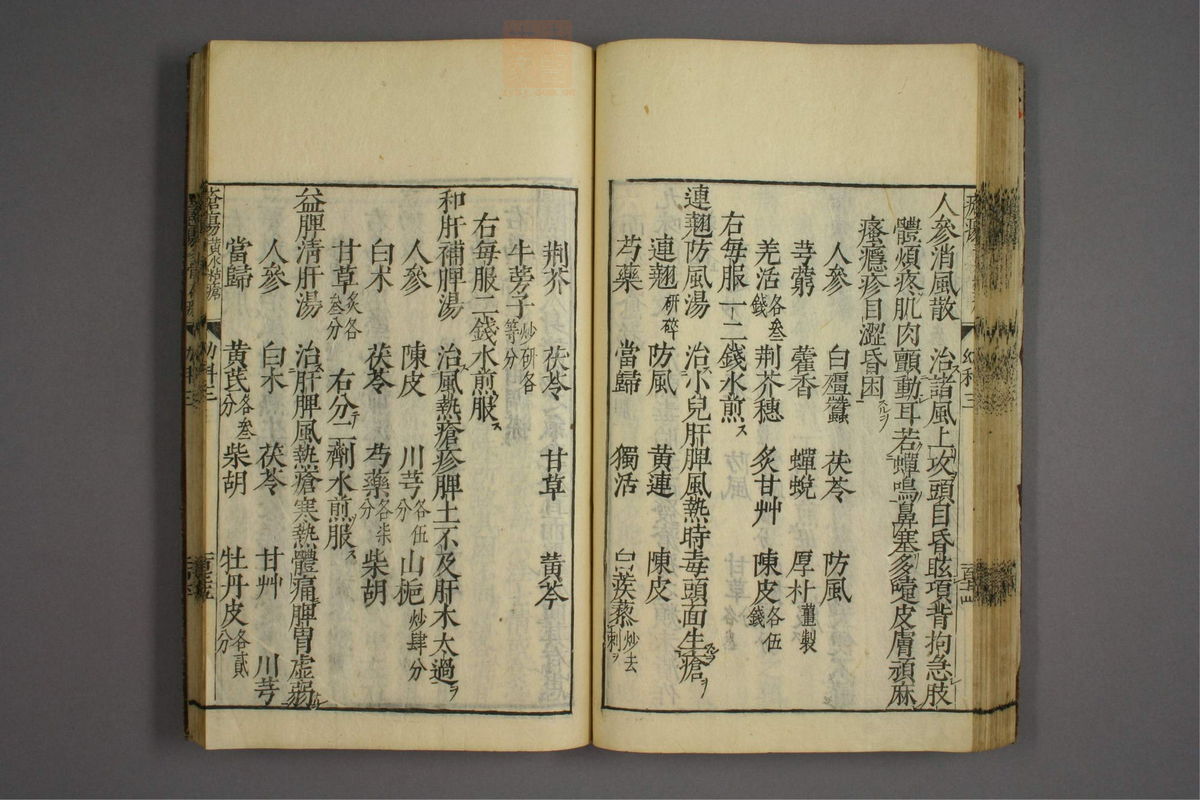 人參消風散　治諸風上攻頭目昏眩項背拘急肢
體煩疼肌肉顫動耳若蟬鳴鼻塞多嚏皮膚頑麻
瘙癮疹目澀昏困
人參　白殭蠶　茯苓　防風
芎藭　藿香　蟬蛻　厚朴薑製
羌活各叁錢　荆芥穗　炙甘艸　陳皮各伍錢
右每服一二錢水煎ス
連翹防風湯　治小兒肝脾風熱時毒頭面生瘡ヲ
連翹研碎　防風　黄連　陳皮
芍藥　當歸　獨活　白蒺藜炒去刺ヲ
荆芥　茯苓　甘草　黄芩
牛蒡子炒研各等分
右每服二錢水煎服ス
和肝補脾湯　治風熱瘡疹脾土不及肝木太過ヲ
人參　陳皮　川芎各伍分　山梔炒肆分
白朮　茯苓　芍藥各柒分　柴胡
甘草炙各叁分　右分テ二劑水煎服ス
益脾清肝湯　治肝脾風熱瘡寒熱體痛脾胃虛弱
人參　白朮　茯苓　甘艸　川芎
當歸　黄芪各叁分　柴胡　牡丹皮各貳分
瘡瘍
幼科三